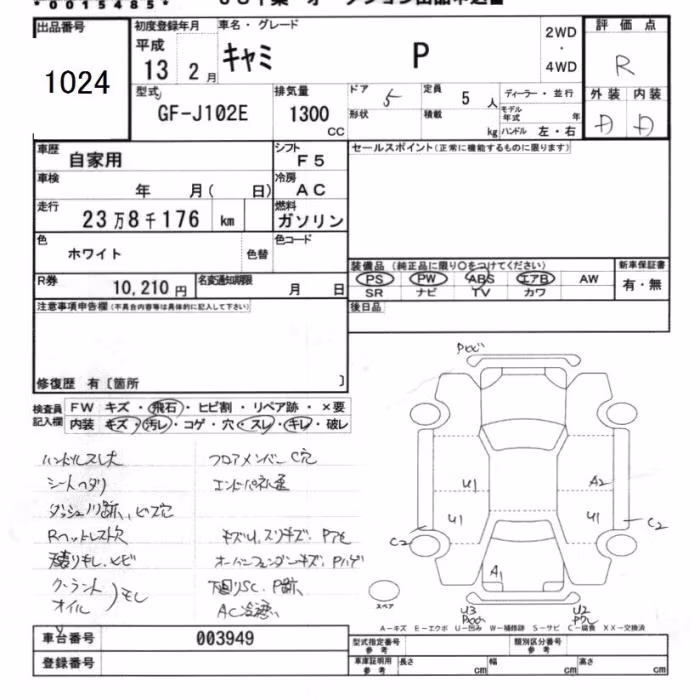 *0015485*
出品番号 初度登録年月 車名・グレード 2WD・4WD 評価点
1024 平成 13 2月 キャミ P R
型式 GF-J102E 排気量 1300 CC ドア 5 定員 5 人 ディーラー・並行 外装 内装
形状 積載 kg モデル年式 年 ハンドル 左・右 D D
車歴 自家用 シフト F5 セールスポイント(正常に機能するものに限ります)
車検 年 月( 日) 冷房 AC
走行 23万8千176 km 燃料 ガソリン
色 ホワイト 色替 色コード
装備品 (純正品に限り○をつけてください) 新車保証書
PS PW ABS エアB AW 有・無
SR ナビ TV カワ
R券 10,210円 名変通知期限 月 日
注意事項申告欄(不具合内容等は具体的に記入して下さい) 後日品
修復歴 有〔箇所 〕
検査員記入欄 FW キズ・飛石・ヒビ割・リペア跡・×要
内装 キズ・汚レ・コゲ・穴・スレ・キレ・破レ
ハンドルスレ大 フロアメンバーC穴
シートヘタリ
ダッシュノリ跡、ビス穴
Rヘッドレスト欠
オーバーフェンダーキズ、Pハゲ
クーラント
オイル モレ
下回りSC、P跡、
U1 A2
U1 U1
C2 C2
A1
U3 U2
スペア
A-キズ E-エクボ U-凹み W-補修跡 S-サビ C-腐食 XX-交換済
車台番号 003949 型式指定番号 参考 類別区分番号 参考
登録番号 車庫証明用 参考 長さ cm 幅 cm 高さ cm